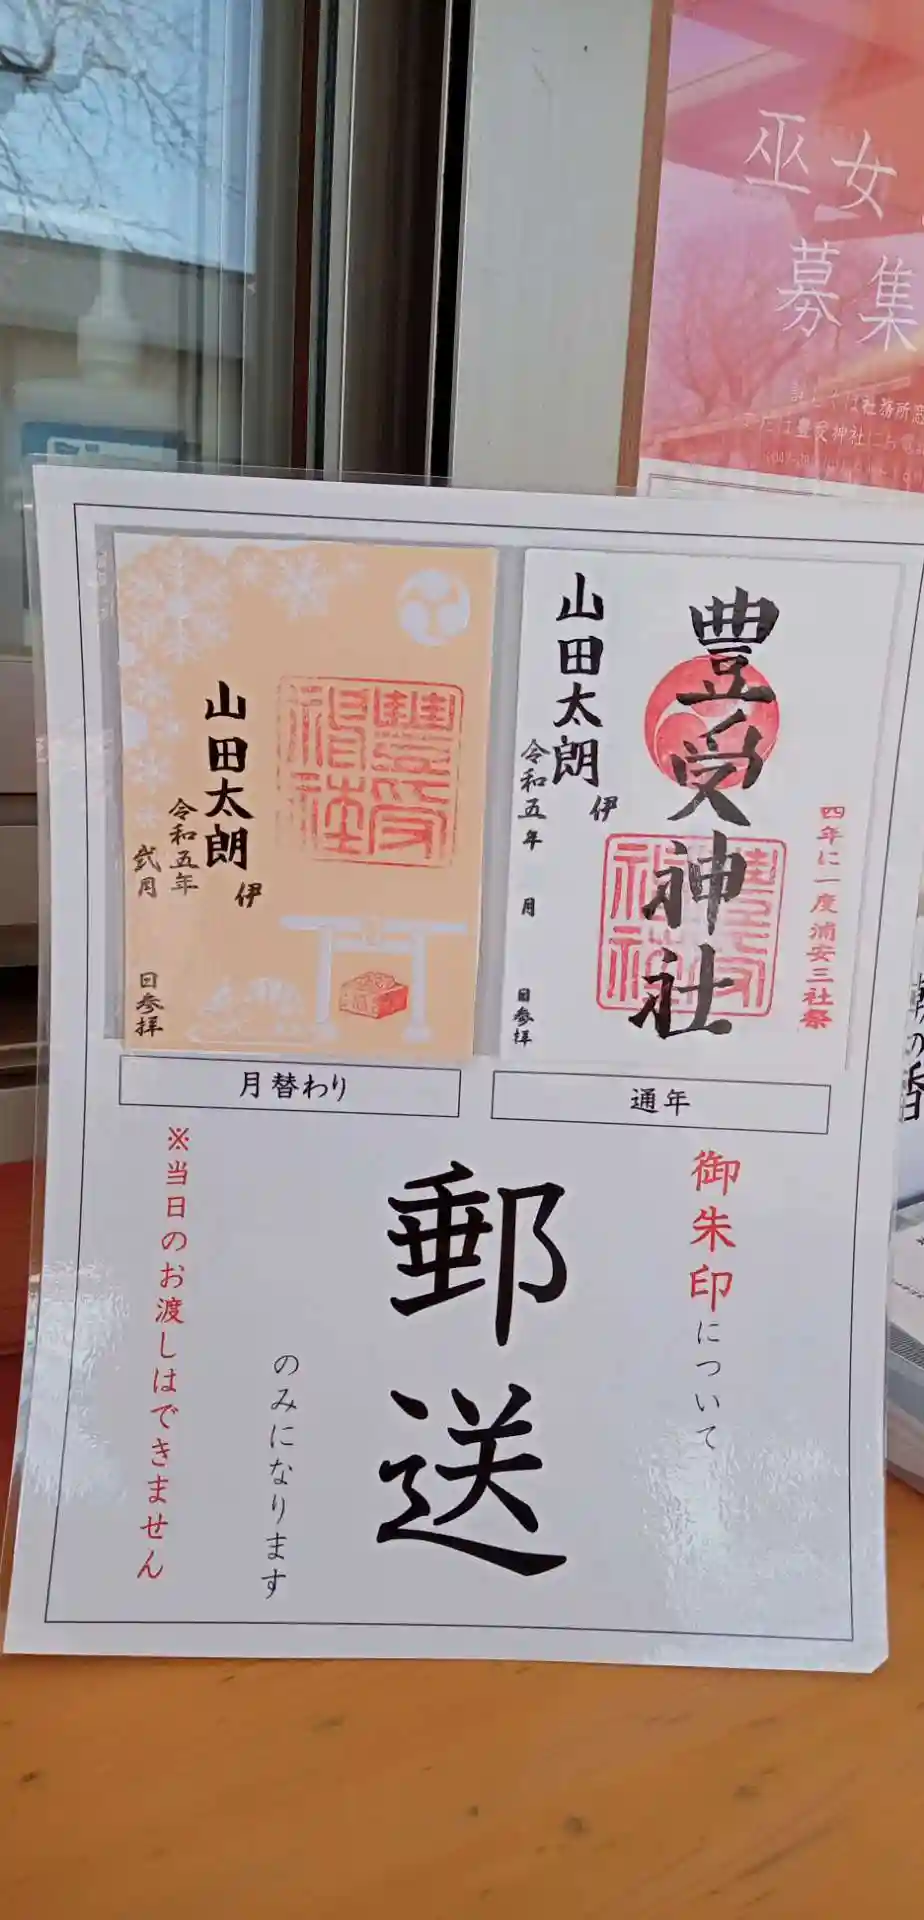 巫女
募集
詳しくは社務所窓
または豊受神社にお電話
豊受神社
四年に一度浦安三社祭
豊受神社
山田太朗
伊
令和五年
月
日参拝
豊受神社
山田太朗
伊
令和五年
弐月
日参拝
通年
月替わり
御朱印について
郵送
のみになります
※当日のお渡しはできません